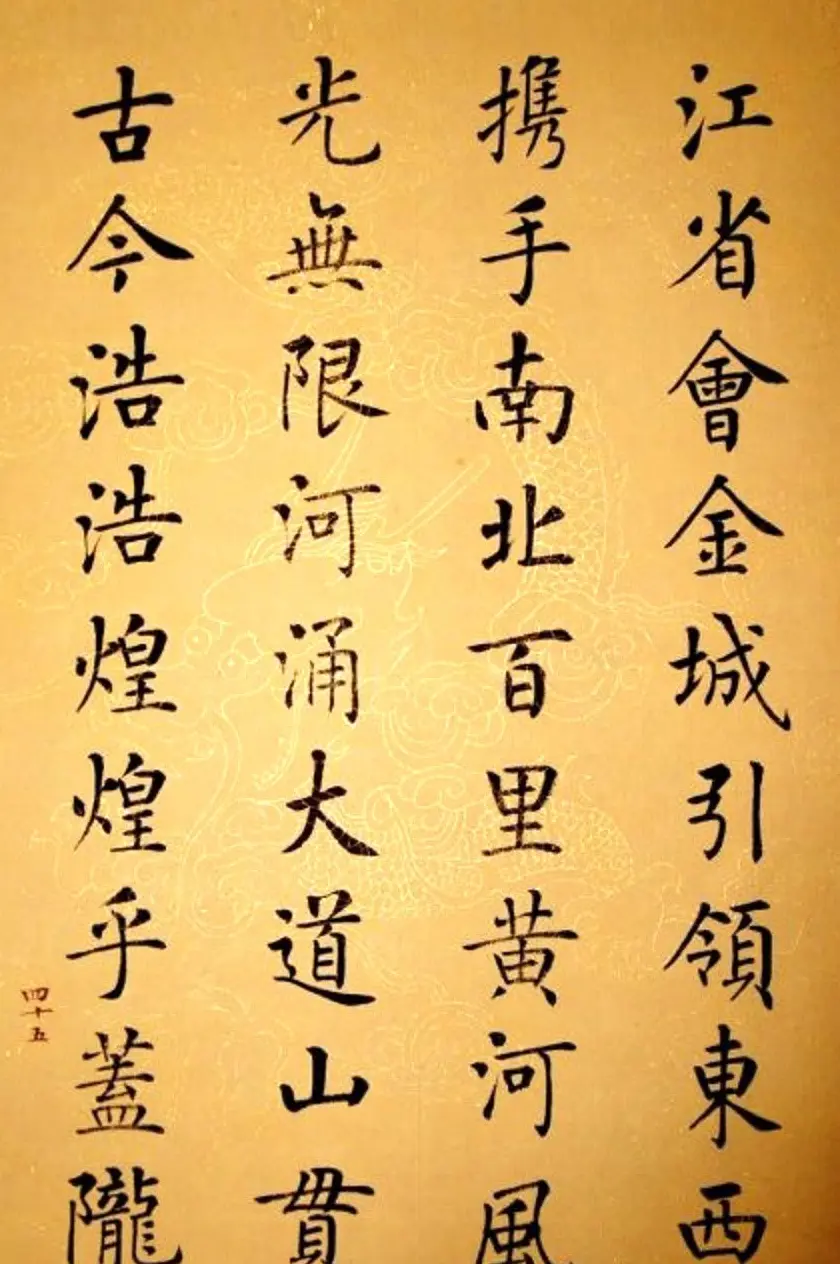 江省會金城引領東西
攜手南北百里黄河風
光無限河涌大道山貫
古今浩浩煌煌乎蓋隴
四十五